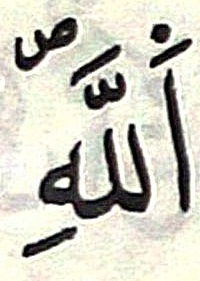 اَللَّهِ ؕص